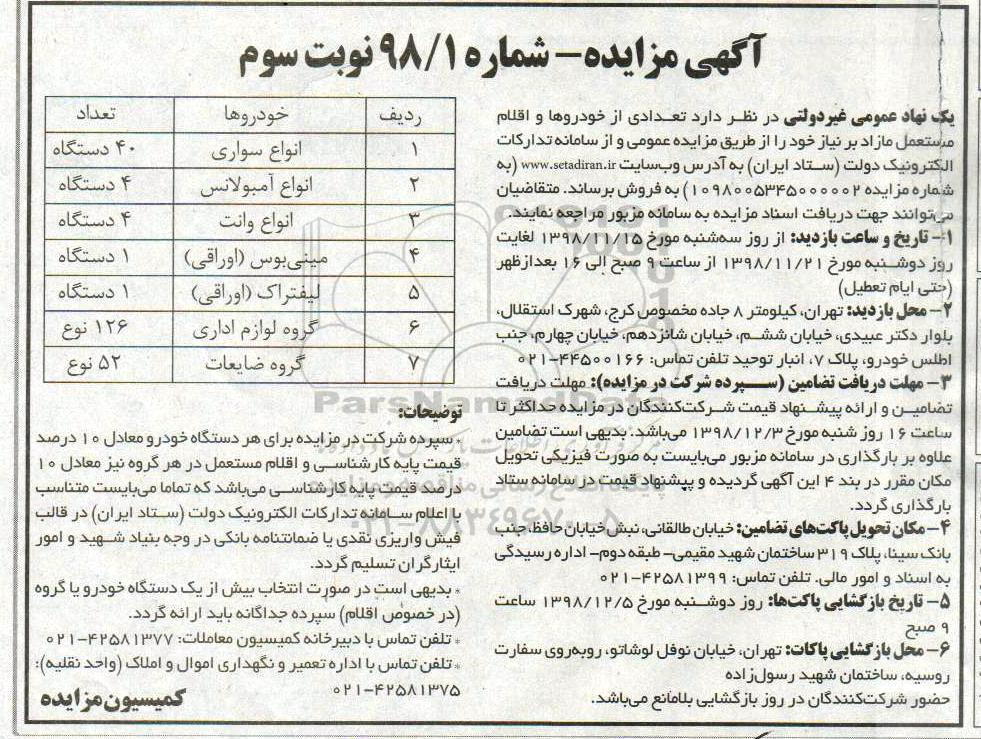 آگهی مزایده – شماره ۹۸/۱ نوبت سوم
یک نهاد عمومی غیردولتی در نظر دارد تعدادی از خودروها و اقلام
مستعمل مازاد بر نیاز خود را از طریق مزایده عمومی و از سامانه تدارکات
الکترونیک دولت (ستاد ایران) به آدرس وب‌سایت www.setadiran.ir (به
شماره مزایده ۱۰۹۸۰۰۵۳۴۵۰۰۰۰۰۲) به فروش برساند. متقاضیان
می‌توانند جهت دریافت اسناد مزایده به سامانه مزبور مراجعه نمایند.
۱– تاریخ و ساعت بازدید: از روز سه‌شنبه مورخ ۱۳۹۸/۱۱/۱۵ لغایت
روز دوشنبه مورخ ۱۳۹۸/۱۱/۲۱ از ساعت ۹ صبح الی ۱۶ بعدازظهر
(حتی ایام تعطیل)
۲– محل بازدید: تهران، کیلومتر ۸ جاده مخصوص کرج، شهرک استقلال،
بلوار دکتر عبیدی، خیابان ششم، خیابان شانزدهم، خیابان چهارم، جنب
اطلس خودرو، پلاک ۷، انبار توحید تلفن تماس: ۴۴۵۰۰۱۶۶–۰۲۱
۳– مهلت دریافت تضامین (سپرده شرکت در مزایده): مهلت دریافت
تضامین و ارائه پیشنهاد قیمت شرکت‌کنندگان در مزایده حداکثر تا
ساعت ۱۶ روز شنبه مورخ ۱۳۹۸/۱۲/۳ می‌باشد. بدیهی است تضامین
علاوه بر بارگذاری در سامانه مزبور می‌بایست به صورت فیزیکی تحویل
مکان مقرر در بند ۴ این آگهی گردیده و پیشنهاد قیمت در سامانه ستاد
بارگذاری گردد.
۴– مکان تحویل پاکت‌های تضامین: خیابان طالقانی، نبش خیابان حافظ، جنب
بانک سینا، پلاک ۳۱۹ ساختمان شهید مقیمی– طبقه دوم– اداره رسیدگی
به اسناد و امور مالی. تلفن تماس: ۴۲۵۸۱۳۹۹–۰۲۱
۵– تاریخ بازگشایی پاکت‌ها: روز دوشنبه مورخ ۱۳۹۸/۱۲/۵ ساعت
۹ صبح
۶– محل بازگشایی پاکات: تهران، خیابان نوفل لوشاتو، روبه‌روی سفارت
روسیه، ساختمان شهید رسول‌زاده
حضور شرکت‌کنندگان در روز بازگشایی بلامانع می‌باشد.
ردیف خودروها تعداد
۱ انواع سواری ۴۰ دستگاه
۲ انواع آمبولانس ۴ دستگاه
۳ انواع وانت ۴ دستگاه
۴ مینی‌بوس (اوراقی) ۱ دستگاه
۵ لیفتراک (اوراقی) ۱ دستگاه
۶ گروه لوازم اداری ۱۲۶ نوع
۷ گروه ضایعات ۵۲ نوع
توضیحات:
* سپرده شرکت در مزایده برای هر دستگاه خودرو معادل ۱۰ درصد
قیمت پایه کارشناسی و اقلام مستعمل در هر گروه نیز معادل ۱۰
درصد قیمت پایه کارشناسی می‌باشد که تماما می‌بایست متناسب
با اعلام سامانه تدارکات الکترونیک دولت (ستاد ایران) در قالب
فیش واریزی نقدی یا ضمانتنامه بانکی در وجه بنیاد شهید و امور
ایثارگران تسلیم گردد.
* بدیهی است در صورت انتخاب بیش از یک دستگاه خودرو یا گروه
(در خصوص اقلام) سپرده جداگانه باید ارائه گردد.
* تلفن تماس با دبیرخانه کمیسیون معاملات: ۴۲۵۸۱۳۷۷–۰۲۱
* تلفن تماس با اداره تعمیر و نگهداری اموال و املاک (واحد نقلیه):
۴۲۵۸۱۳۷۵–۰۲۱
کمیسیون مزایده
ParsNamadData
۰۲۱–۸۸۳۴۹۶۷۰–۵